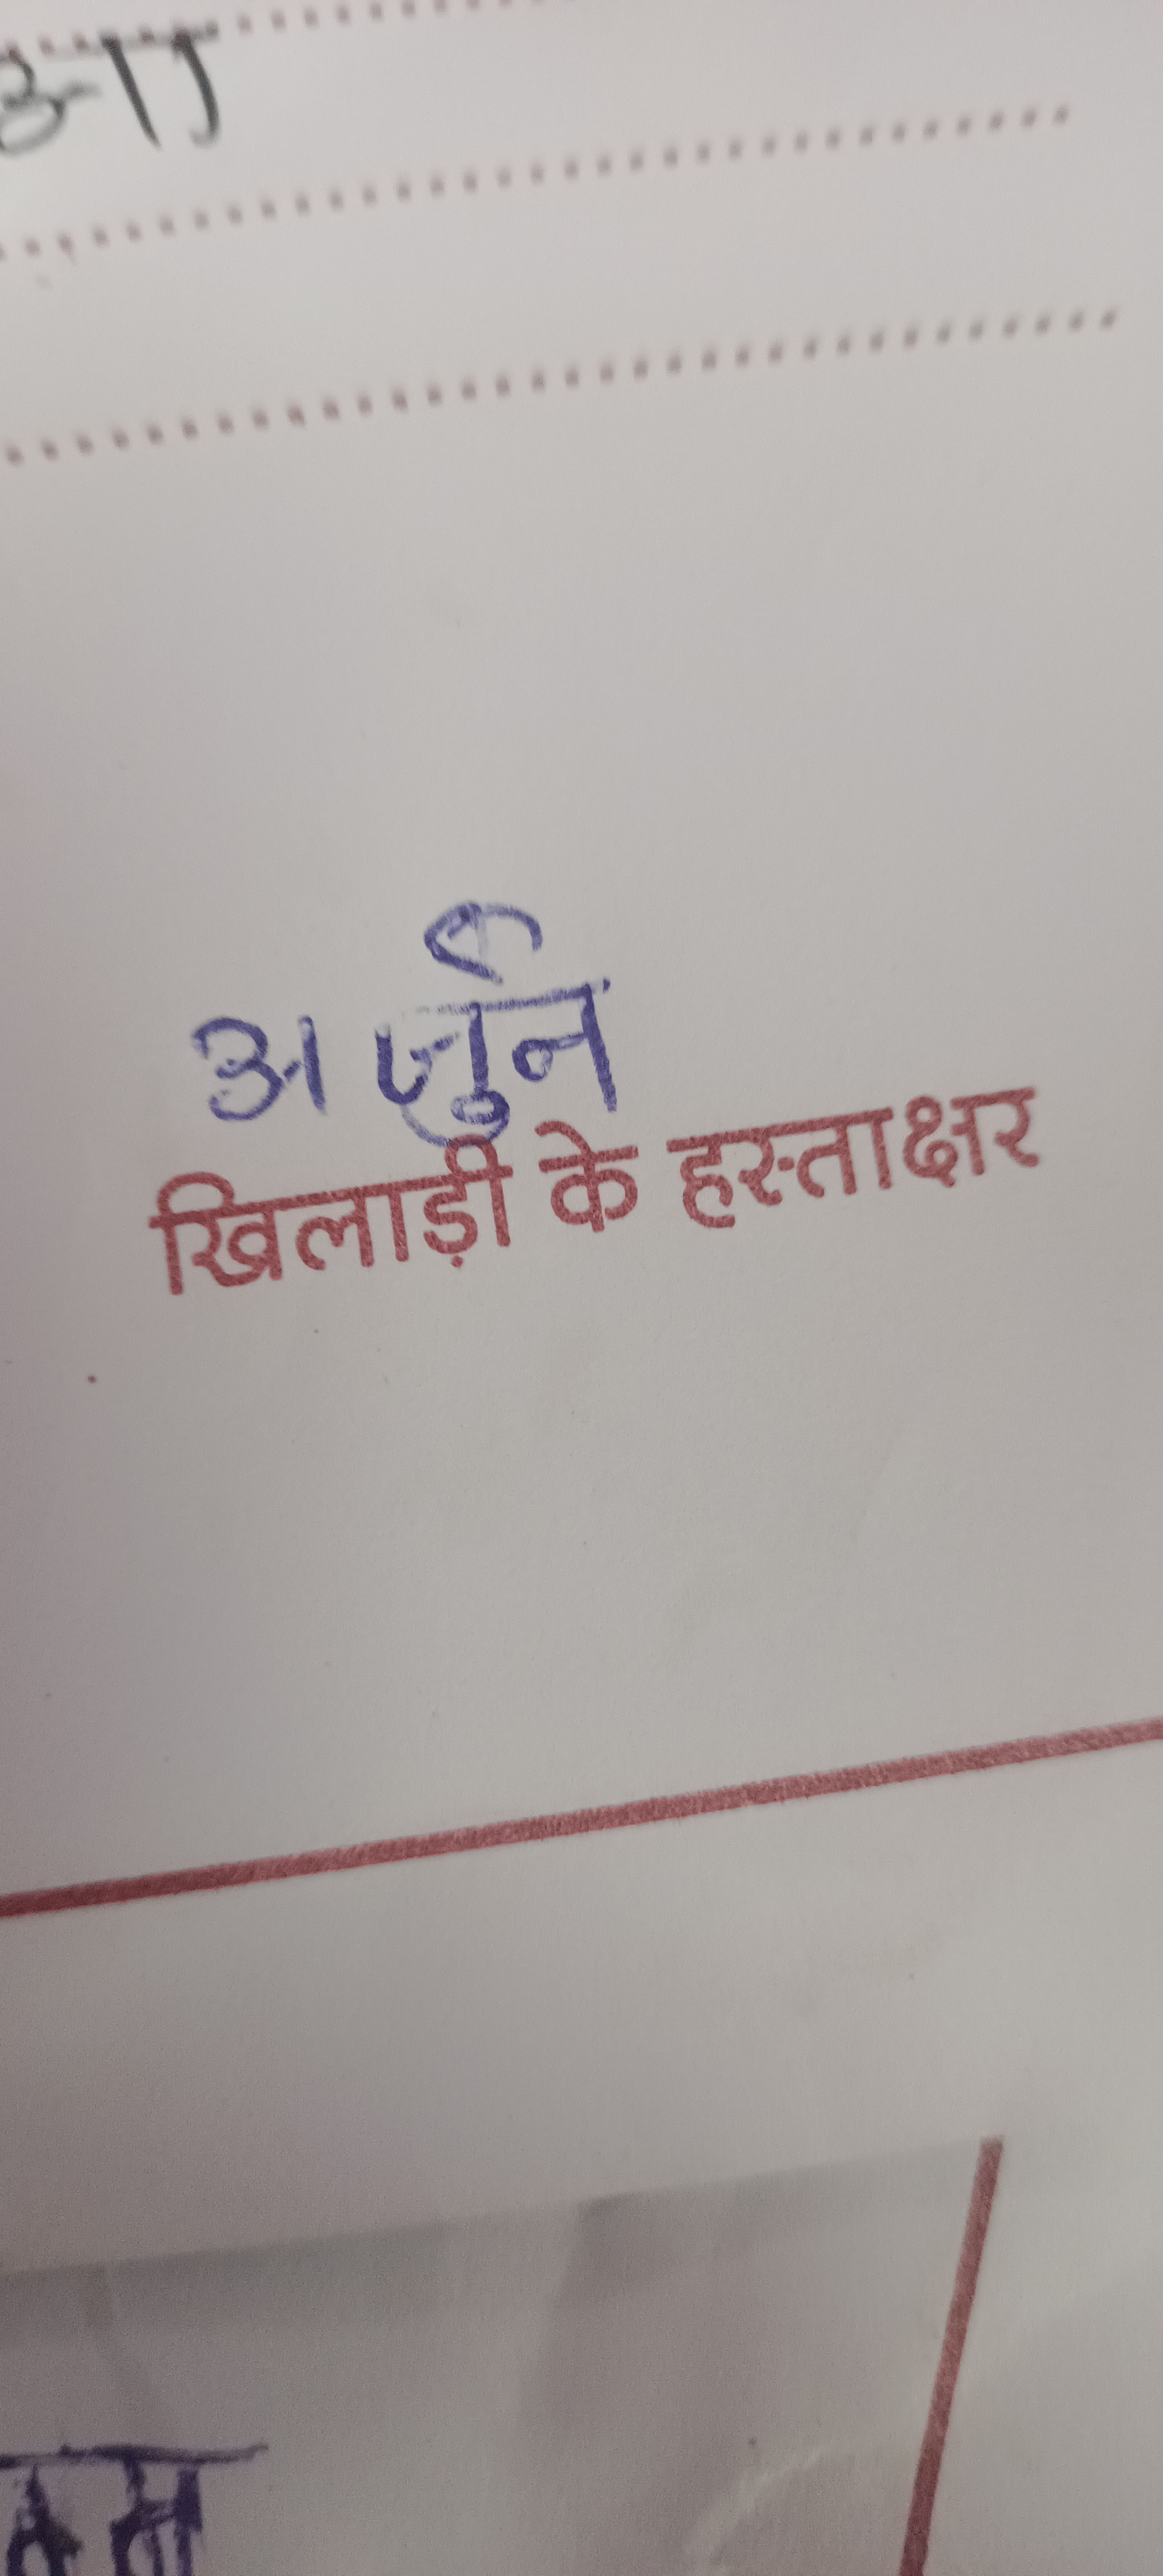 अर्जुन
खिलाड़ी के हस्ताक्षर